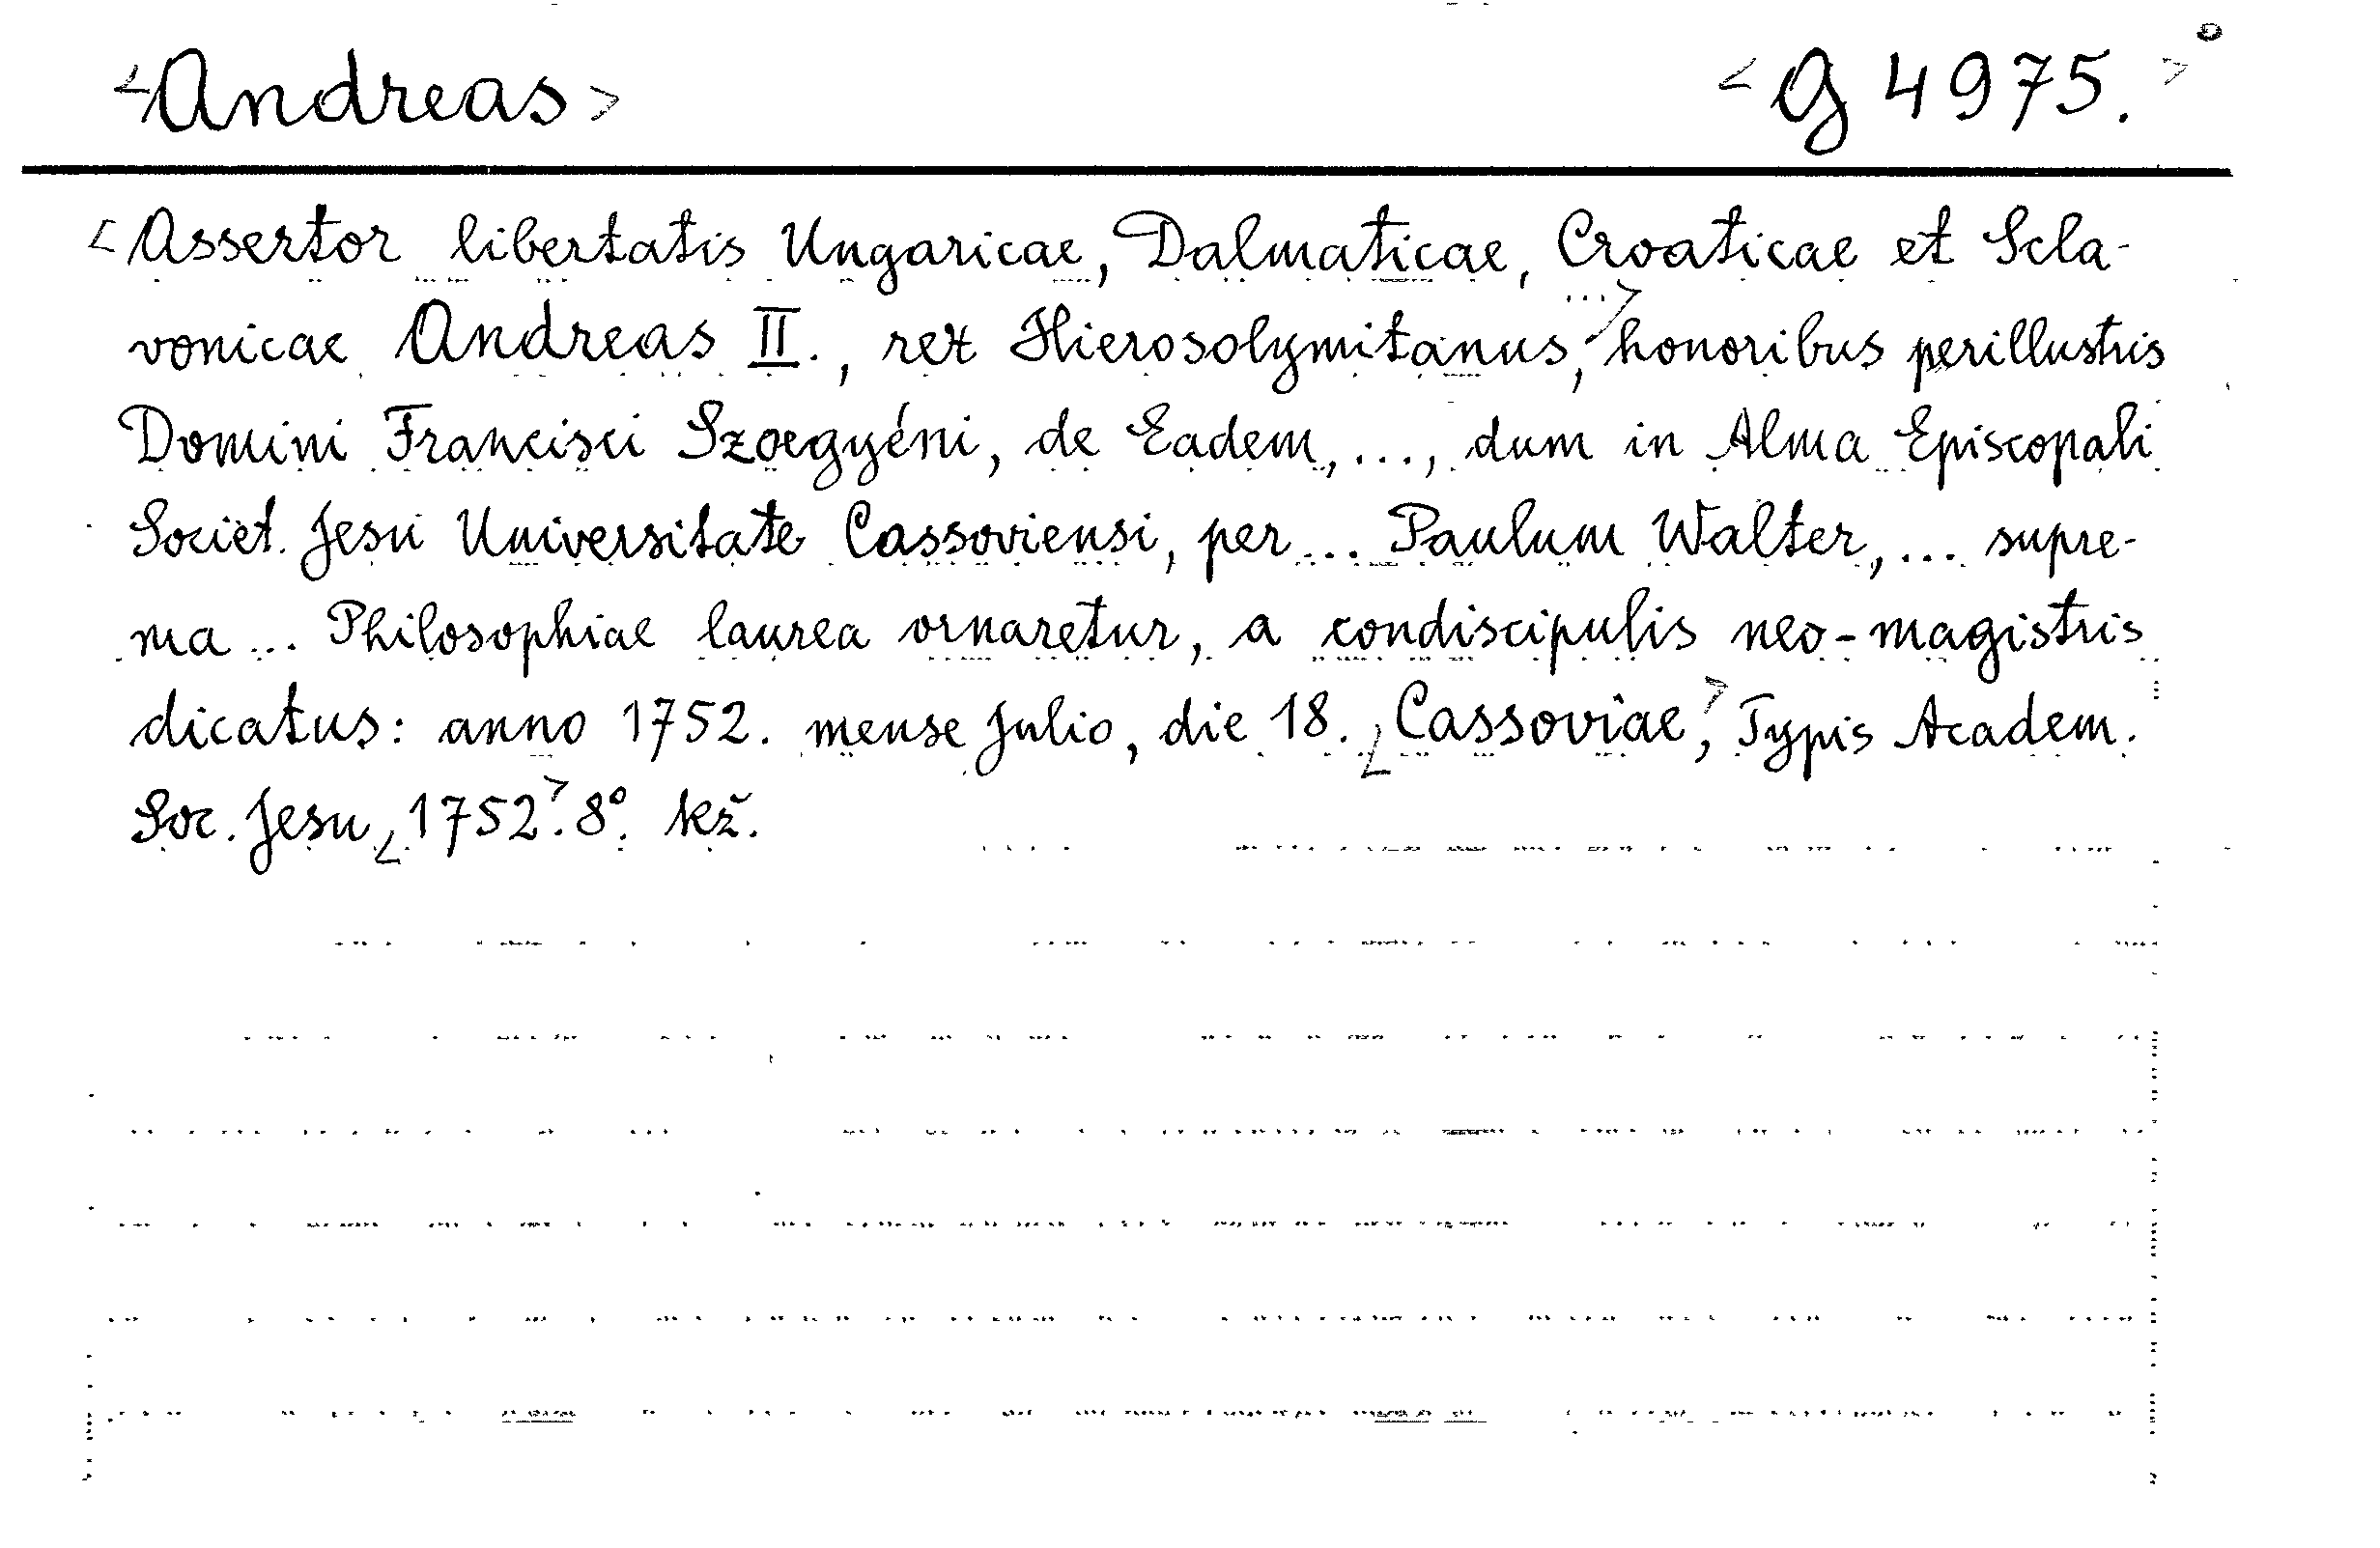 <Andreas> <G 4975.>
<Assertor libertatis Ungaricae, Dalmaticae, Croaticae et Scla-
vonicae Andreas II., rex Hierosolymitanus, ...> honoribus perillustris
Domini Francisci Szoegyéni, de Eadem, ..., dum in Alma Episcopali
Societ. Jesu Universitate Cassoviensi, per ... Paulum Walter, ... supre-
ma ... Philosophiae laurea ornaretur, a condiscipulis neo-magistris
dicatus: anno 1752. mense Julio, die 18. <Cassoviae,> Typis Academ.
Soc. Jesu, <1752>. 8°. kž.